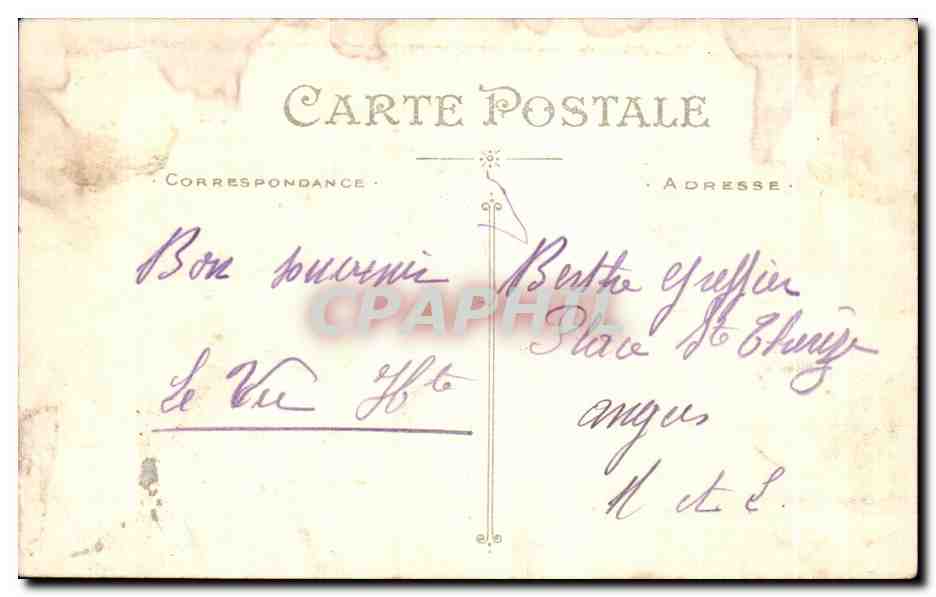 CARTE POSTALE
· CORRESPONDANCE ·
· ADRESSE ·
Bon souvenir
Le Hte
Berthe Greffier
Place Ste
angers
M et L.
CPAPHIL